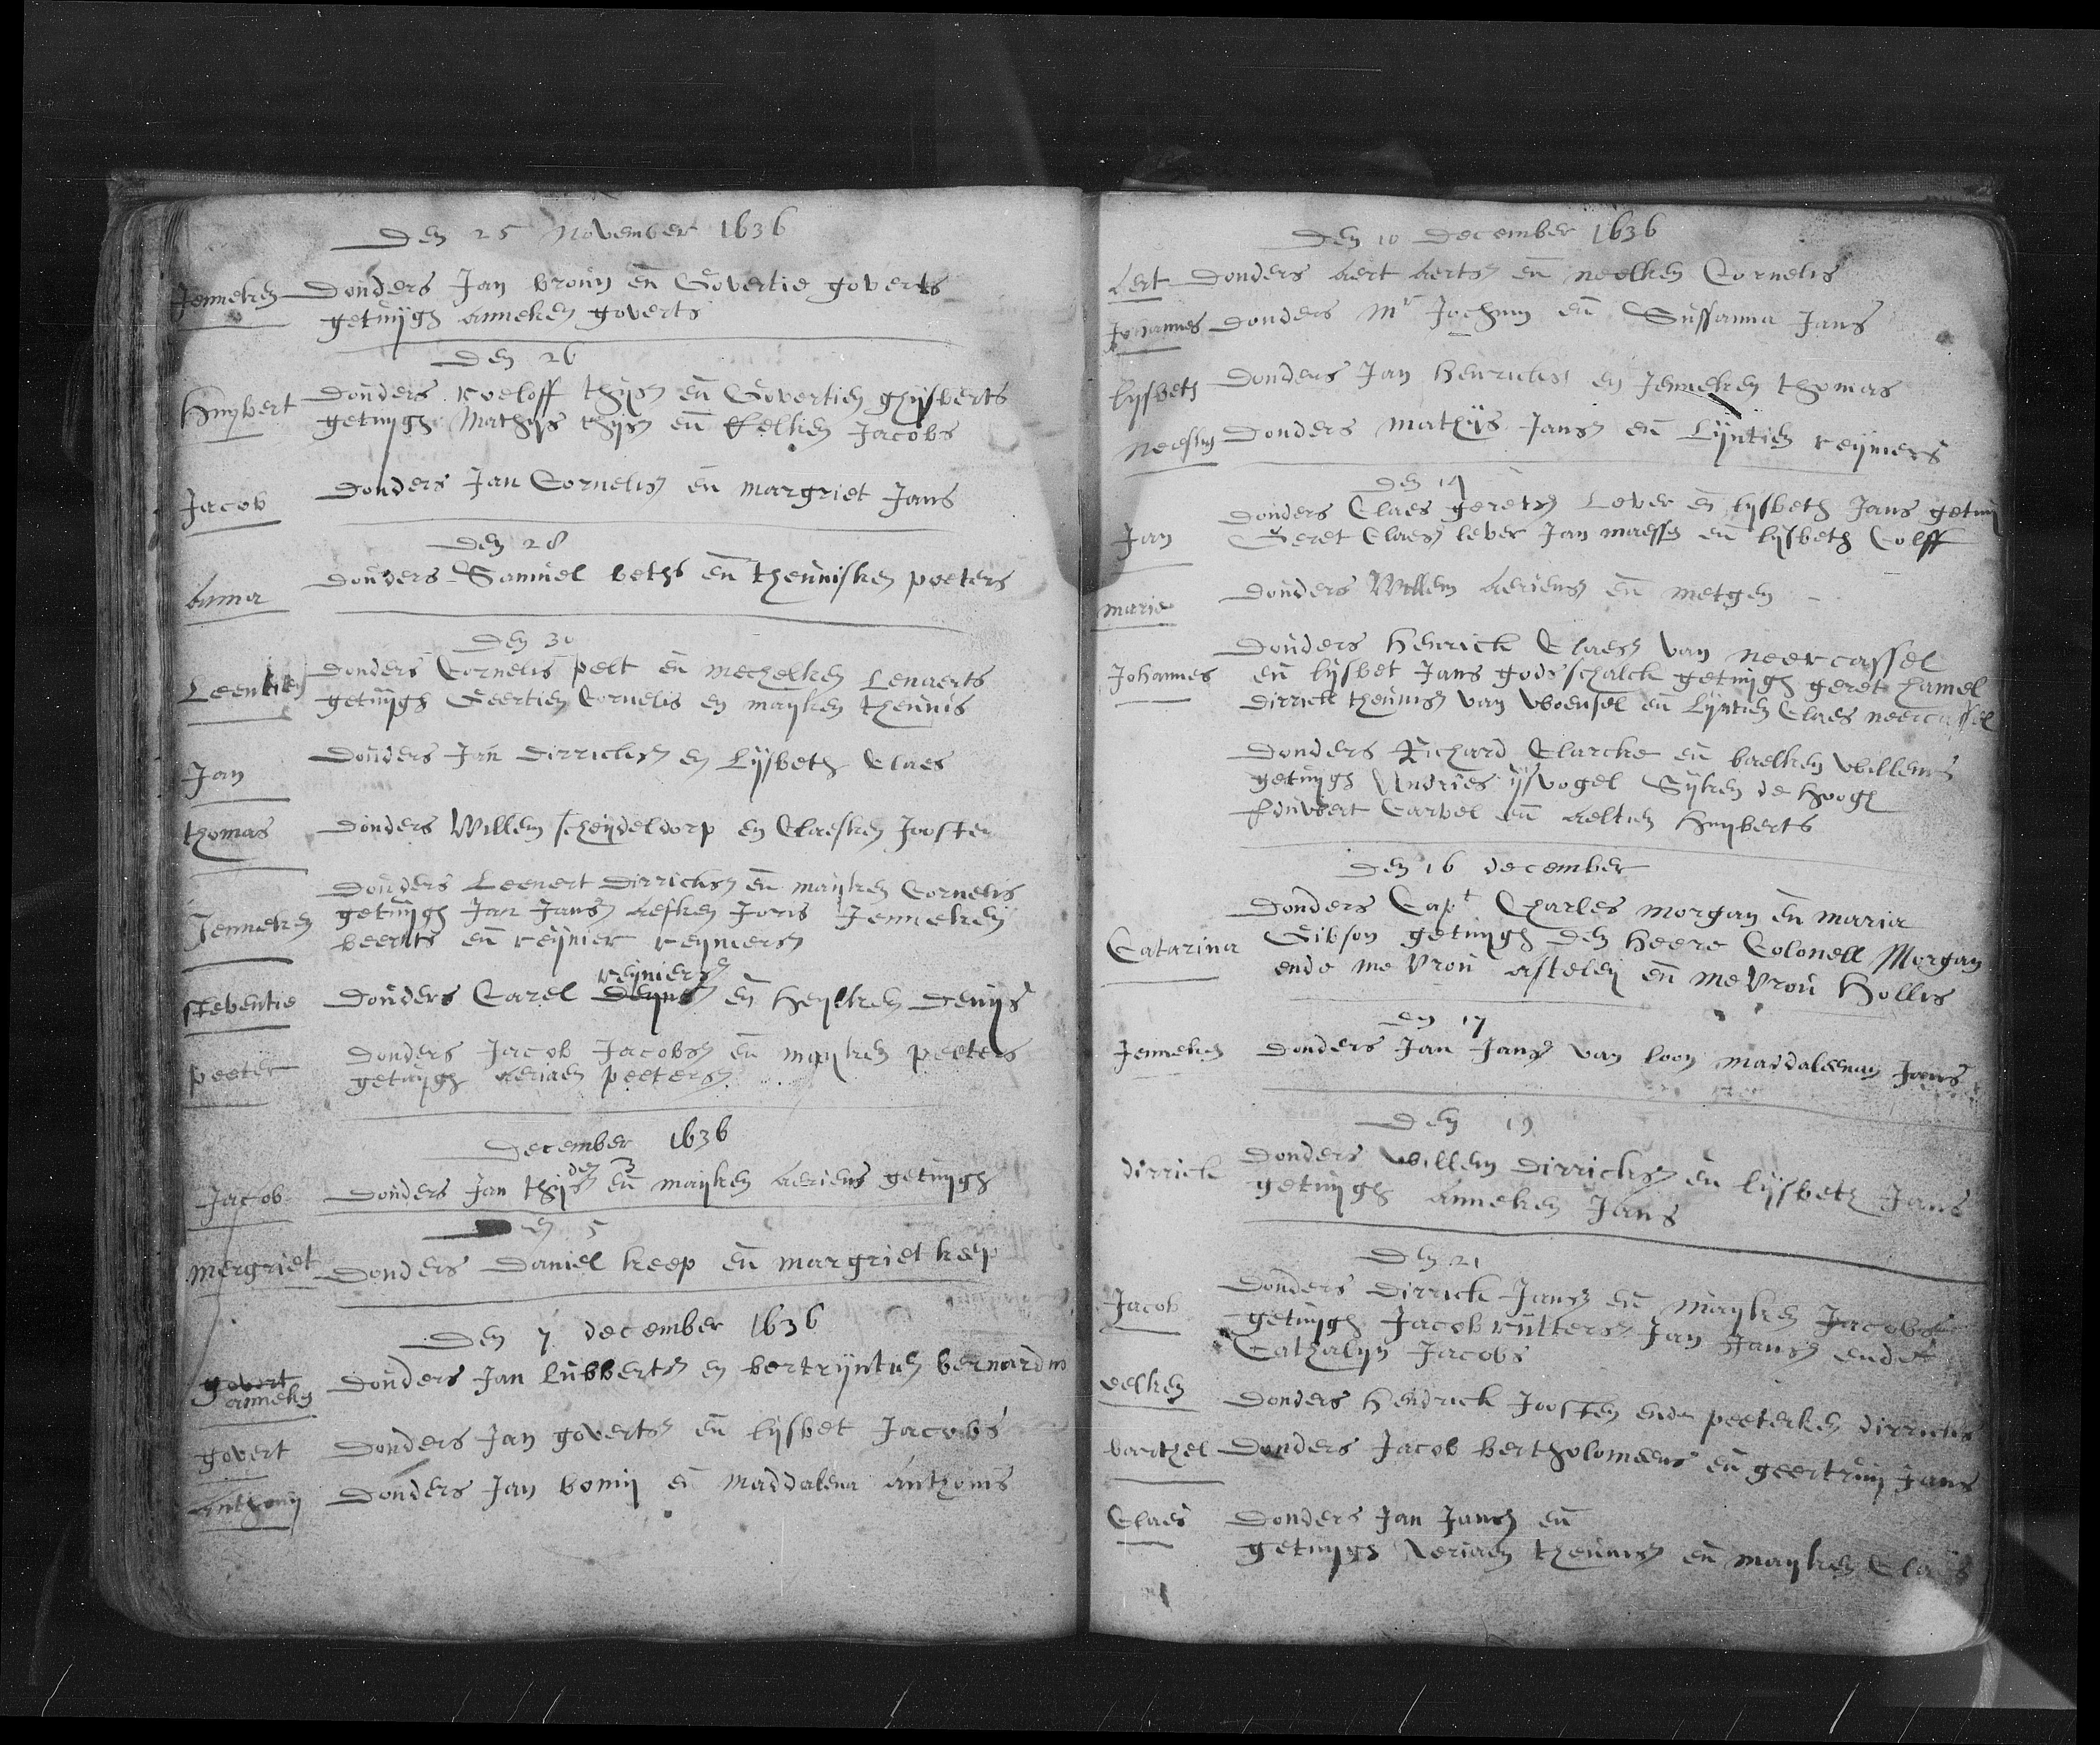 Den 25 November 1636
Jenneken Donders Jan broun en Govertie goverts
getuijgh Anneken goverts
Den 26
Huijbert Donders Roeloff thijsz en Govertien ghijsberts
getuijgh Mathijs thijsz en Eelken Jacobs
Jacob Donders Jan Cornelisz en margriet Jans
Den 28
Anna Donders Samuel beths en theunisken peeters
Den 30
Leentien Donders Cornelis pelt en mechelken Lenaerts
getuijgh Geertien Cornelis en maijken theunis
Jan Donders Jan Dirricksz en Lijsbeth Claes
thomas Donders Willem scheijdeldorp en Claesken Joosten
Donders Leenert Dirricksz en maijken Cornelis
Jenneken getuijgh Jan Jansz Aefken Joris Jenneken
beernts en reijnier reijniersz
reijniersz
steventie Donders Carel Deynsz en Heijlken Denijs
peeter Donders Jacob Jacobsz en maijken peeters
getuijgh Aeriaen peetersz
December 1636
den 3
Jacob Donders Jan thijsz en maijken Aeriens getuijgh
den 5
Mergriet Donders Daniel keep en margriet keep
Den 7 december 1636
govert
Anneken Donders Jan lubbertsz en bertrijntien bernardus
govert Donders Jan govertsz en lijsbet Jacobs
Anthonij Donders Jan bomij en Maddalena Anthonis
Den 10 December 1636
Aert Donders Aert Aertsz en neelken Cornelis
Johannes Donders Mr Jochum en Sussanna Jans
lijsbeth Donders Jan Henricksz en Jenneken thomas
neesken Donders mathijs Jansz en Lijntien reijniers
Den 14
Donders Claes geretsz Lever en lijsbeth Jans getuij
Jan Geret Claesz lever Jan maessen en lijsbeth Colff
marie Donders Willem Aeriensz en metgen
Donders Henrick Claesz van neercassel
Johannes en lijsbet Jans godsschalck getuijgh geret hamel
Dirrick theunisz van Woensel en Lijntien Claes neercassel
Donders Richard Clarcke en baelken Willems
getuijgh Andries ijsvogel Sijken de Hoogh
Eduwert Carvel en Aeltien Huijberts
Den 16 december
Donders Capt Charles Morgan en maria
Catarina Gibson getuijgh den Heere Colonell Morgan
ende me vrou Asteleij en me vrou Hollis
den 17
Jenneken Donders Jan Jansz van loon Maddaleena Jans
Den 19
dirrick Donders Willem Dirricksz en lijsbeth Jans
getuijgh Anneken Jans
Den 21
Jacob Donders Dirrick Jansz en Maijken Jacobs
getuijgh Jacob ruttersz Jan Jansz ende
Cathalijn Jacobs
eelken Donders Hendrick Joosten ende peeterken dirricks
barthel Donders Jacob bertholomeeus en geertruij Jans
Claes Donders Jan Jansz en
getuijgh Aeriaen theunisz en maijken Claes